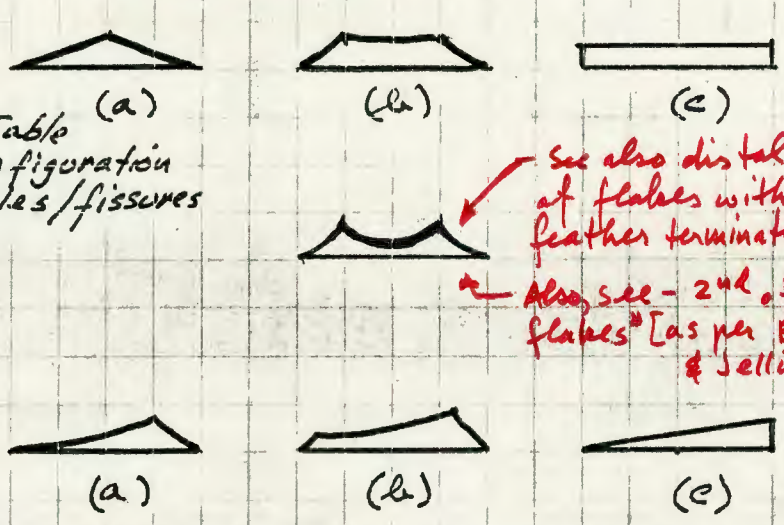 (a) (b) (c)
Table
figuration
les/fissures
See also distal
of flakes with
feather terminat
Also, see - 2nd
flakes" [as per
&
(a) (b) (c)